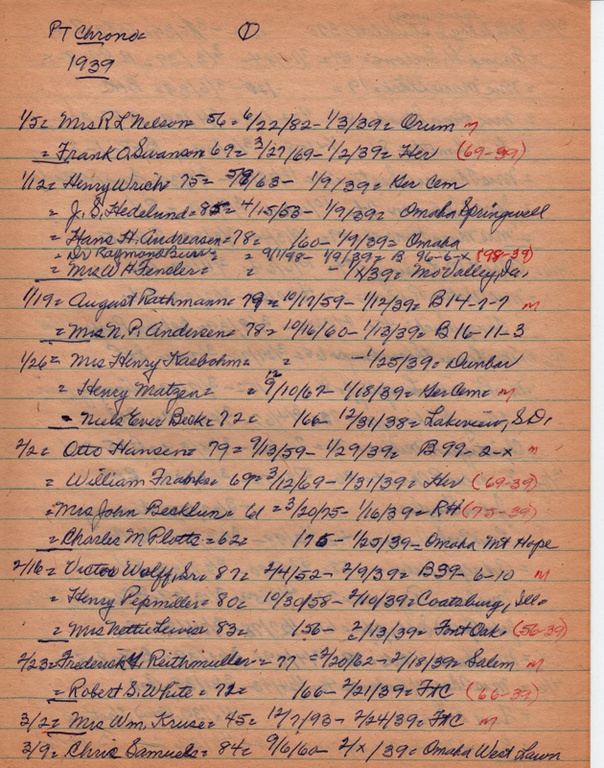 PT Chrono= ①
1939
1/5= Mrs R L Nelson= 56= 6/22/82- 1/3/39= Orum m
= Frank O. Swanson= 69= 3/27/69- 1/2/39= Her (69-39)
1/12= Henry Wrich= 75= /63- 1/9/39= Ker Cem
= J. S. Hedelund= 85= 4/15/53- 1/9/39= Omaha Springwell
= Hans H. Andreasen= 78= /60- 1/9/39= Omaha
= Dr Raymond = 9/1/98- 1/9/39= B 96-6-x (98-39)
= Mrs W H Fensler= = - 1/x/39= Mo Valley, Ia.
1/19= August Rathmann= 79= 10/17/59- 1/12/39= B14-7-7 m
= Mrs N. P. Andersen= 78= 10/16/60- 1/13/39= B16-11-3
1/26= Mrs Henry Kasbohm= = -1/25/39= Dunbar
= Henry Matzen= = /10/67- 1/18/39= Ker Cem= m
= Niels Ever Beck= 72= /66- 12/31/38= Lakeview, S.D.
2/2= Otto Hansen= 79= 9/13/59- 1/29/39= B99-2-x m
= William Frahm= 69= 3/12/69- 1/31/39= Her (69-39)
= Mrs John Becklun= 61= 3/20/75- 1/16/39= RH (75-39)
= Charles M Plotts= 62= /75- 1/25/39= Omaha Mt Hope
2/16= Victor Wolff, Sr= 87= 2/4/52- 2/9/39= B39-6-10 m
= Henry Pepmiller= 80= 10/30/58- 2/10/39= Coatsburg, Ill=
= Mrs Nettie Lewis= 83= /56- 2/13/39= Font Oak= (56-39)
2/23= Frederick Y. Reithmuller= 77= 2/20/62- 2/18/39= Salem m
= Robert S. White= 72= /66- 2/21/39= FtC (66-39)
3/2= Mrs Wm. Kruse= 45= 12/7/93- 2/24/39= FtC m
3/9= Chris Samuels= 84= 9/6/60- 2/x/39= Omaha West Lawn